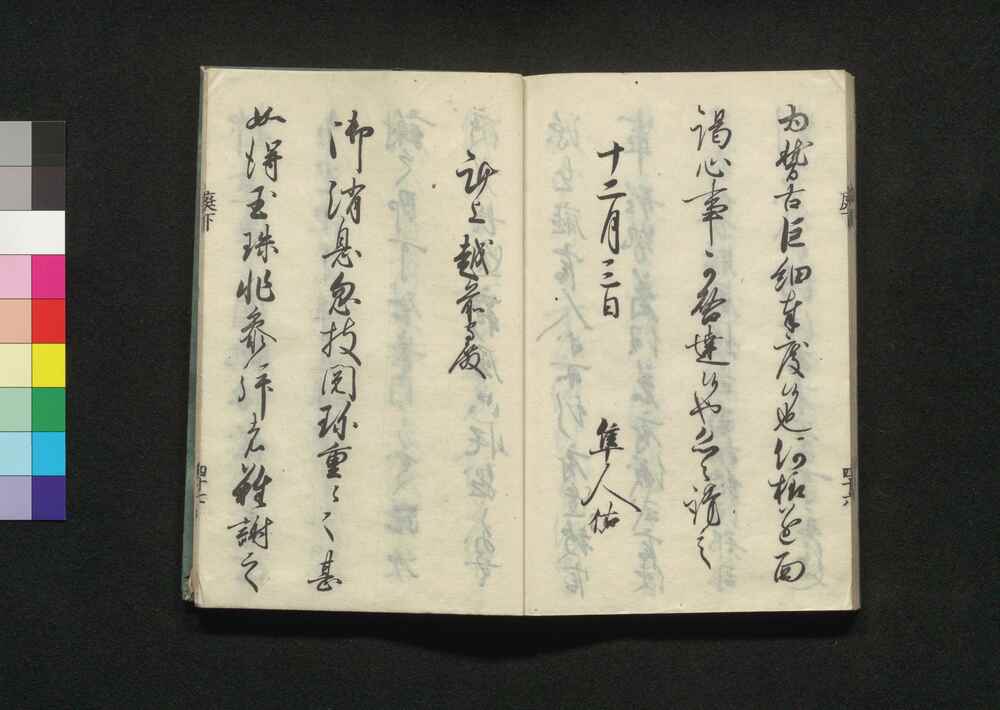 為稽古巨細奉度候也何様企面
謁心事可啓達候也恐々謹言
十二月三日
隼人佑
謹上越前守殿
御消息忽披閲珍重々々甚
如得玉珠非参拝者難謝之
庭下
四十七